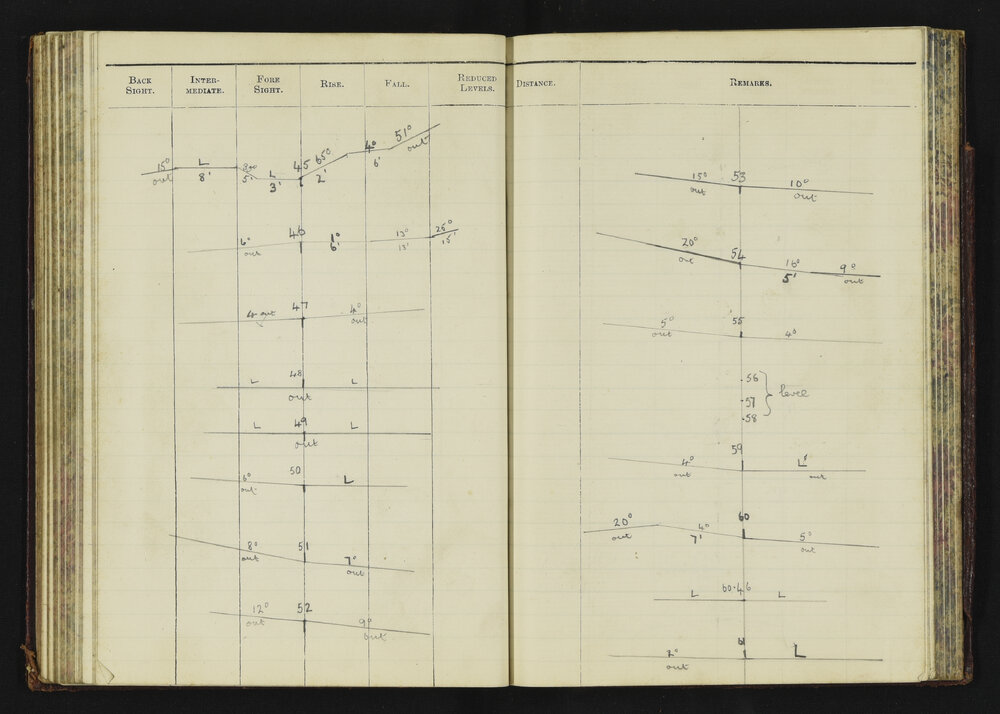 BACK SIGHT. INTER-MEDIATE. FORE SIGHT. RISE. FALL. REDUCED LEVELS. DISTANCE. REMARKS.
15° L 45 65° 4° 51°
out 8' 5' L 3' 2' 6' out
6° 46 1° 13° 25°
out 6' 13' 15'
4 out 47 4°
out
L 48 L
out
L 49 L
out
6° 50 L
out
8° 51 7°
out out
12° 52 9°
out out
15° 53 10°
out out
20° 54 16° 9°
out 5' out
5° 55 4°
out
56
57 level
58
4° 59 L
out out
20° 4° 60 5°
out 7' out
L 60·46 L
2° 61 L
out